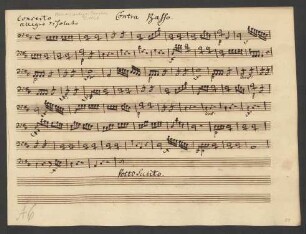 Concerto Contra Basso.
allegro risoluto
Volti Subito.
A6